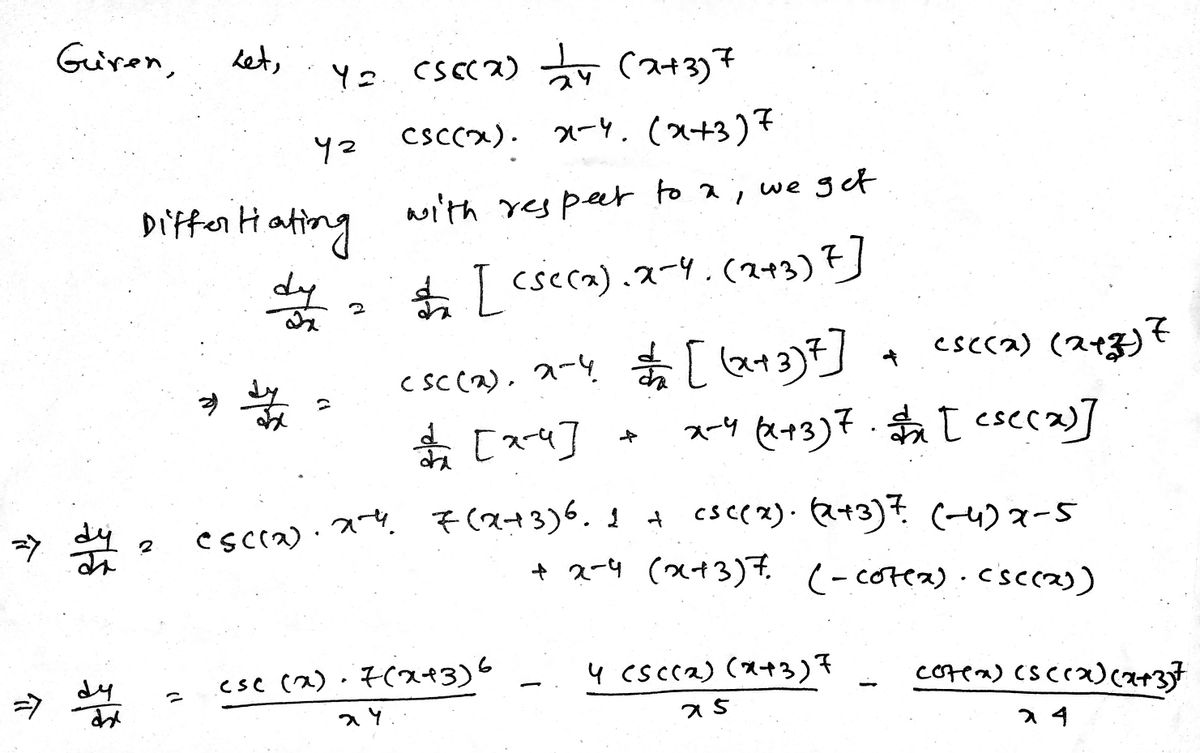 Given, Let, y = csc(x) 1/x^4 (x+3)^7
y = csc(x). x^-4. (x+3)^7
Differtiating with respect to x, we get
dy/dx = d/dx [csc(x).x^-4.(x+3)^7]
⇒ dy/dx = csc(x). x^-4. d/dx [(x+3)^7] + csc(x) (x+3)^7
d/dx [x^-4] + x^-4 (x+3)^7 . d/dx [csc(x)]
⇒ dy/dx = csc(x). x^-4. 7(x+3)^6. 1 + csc(x). (x+3)^7. (-4) x^-5
+ x^-4 (x+3)^7. (-cot(x). csc(x))
⇒ dy/dx = csc (x). 7(x+3)^6 / x^4 - 4 csc(x) (x+3)^7 / x^5 - cot(x) csc(x)(x+3)^7 / x^4